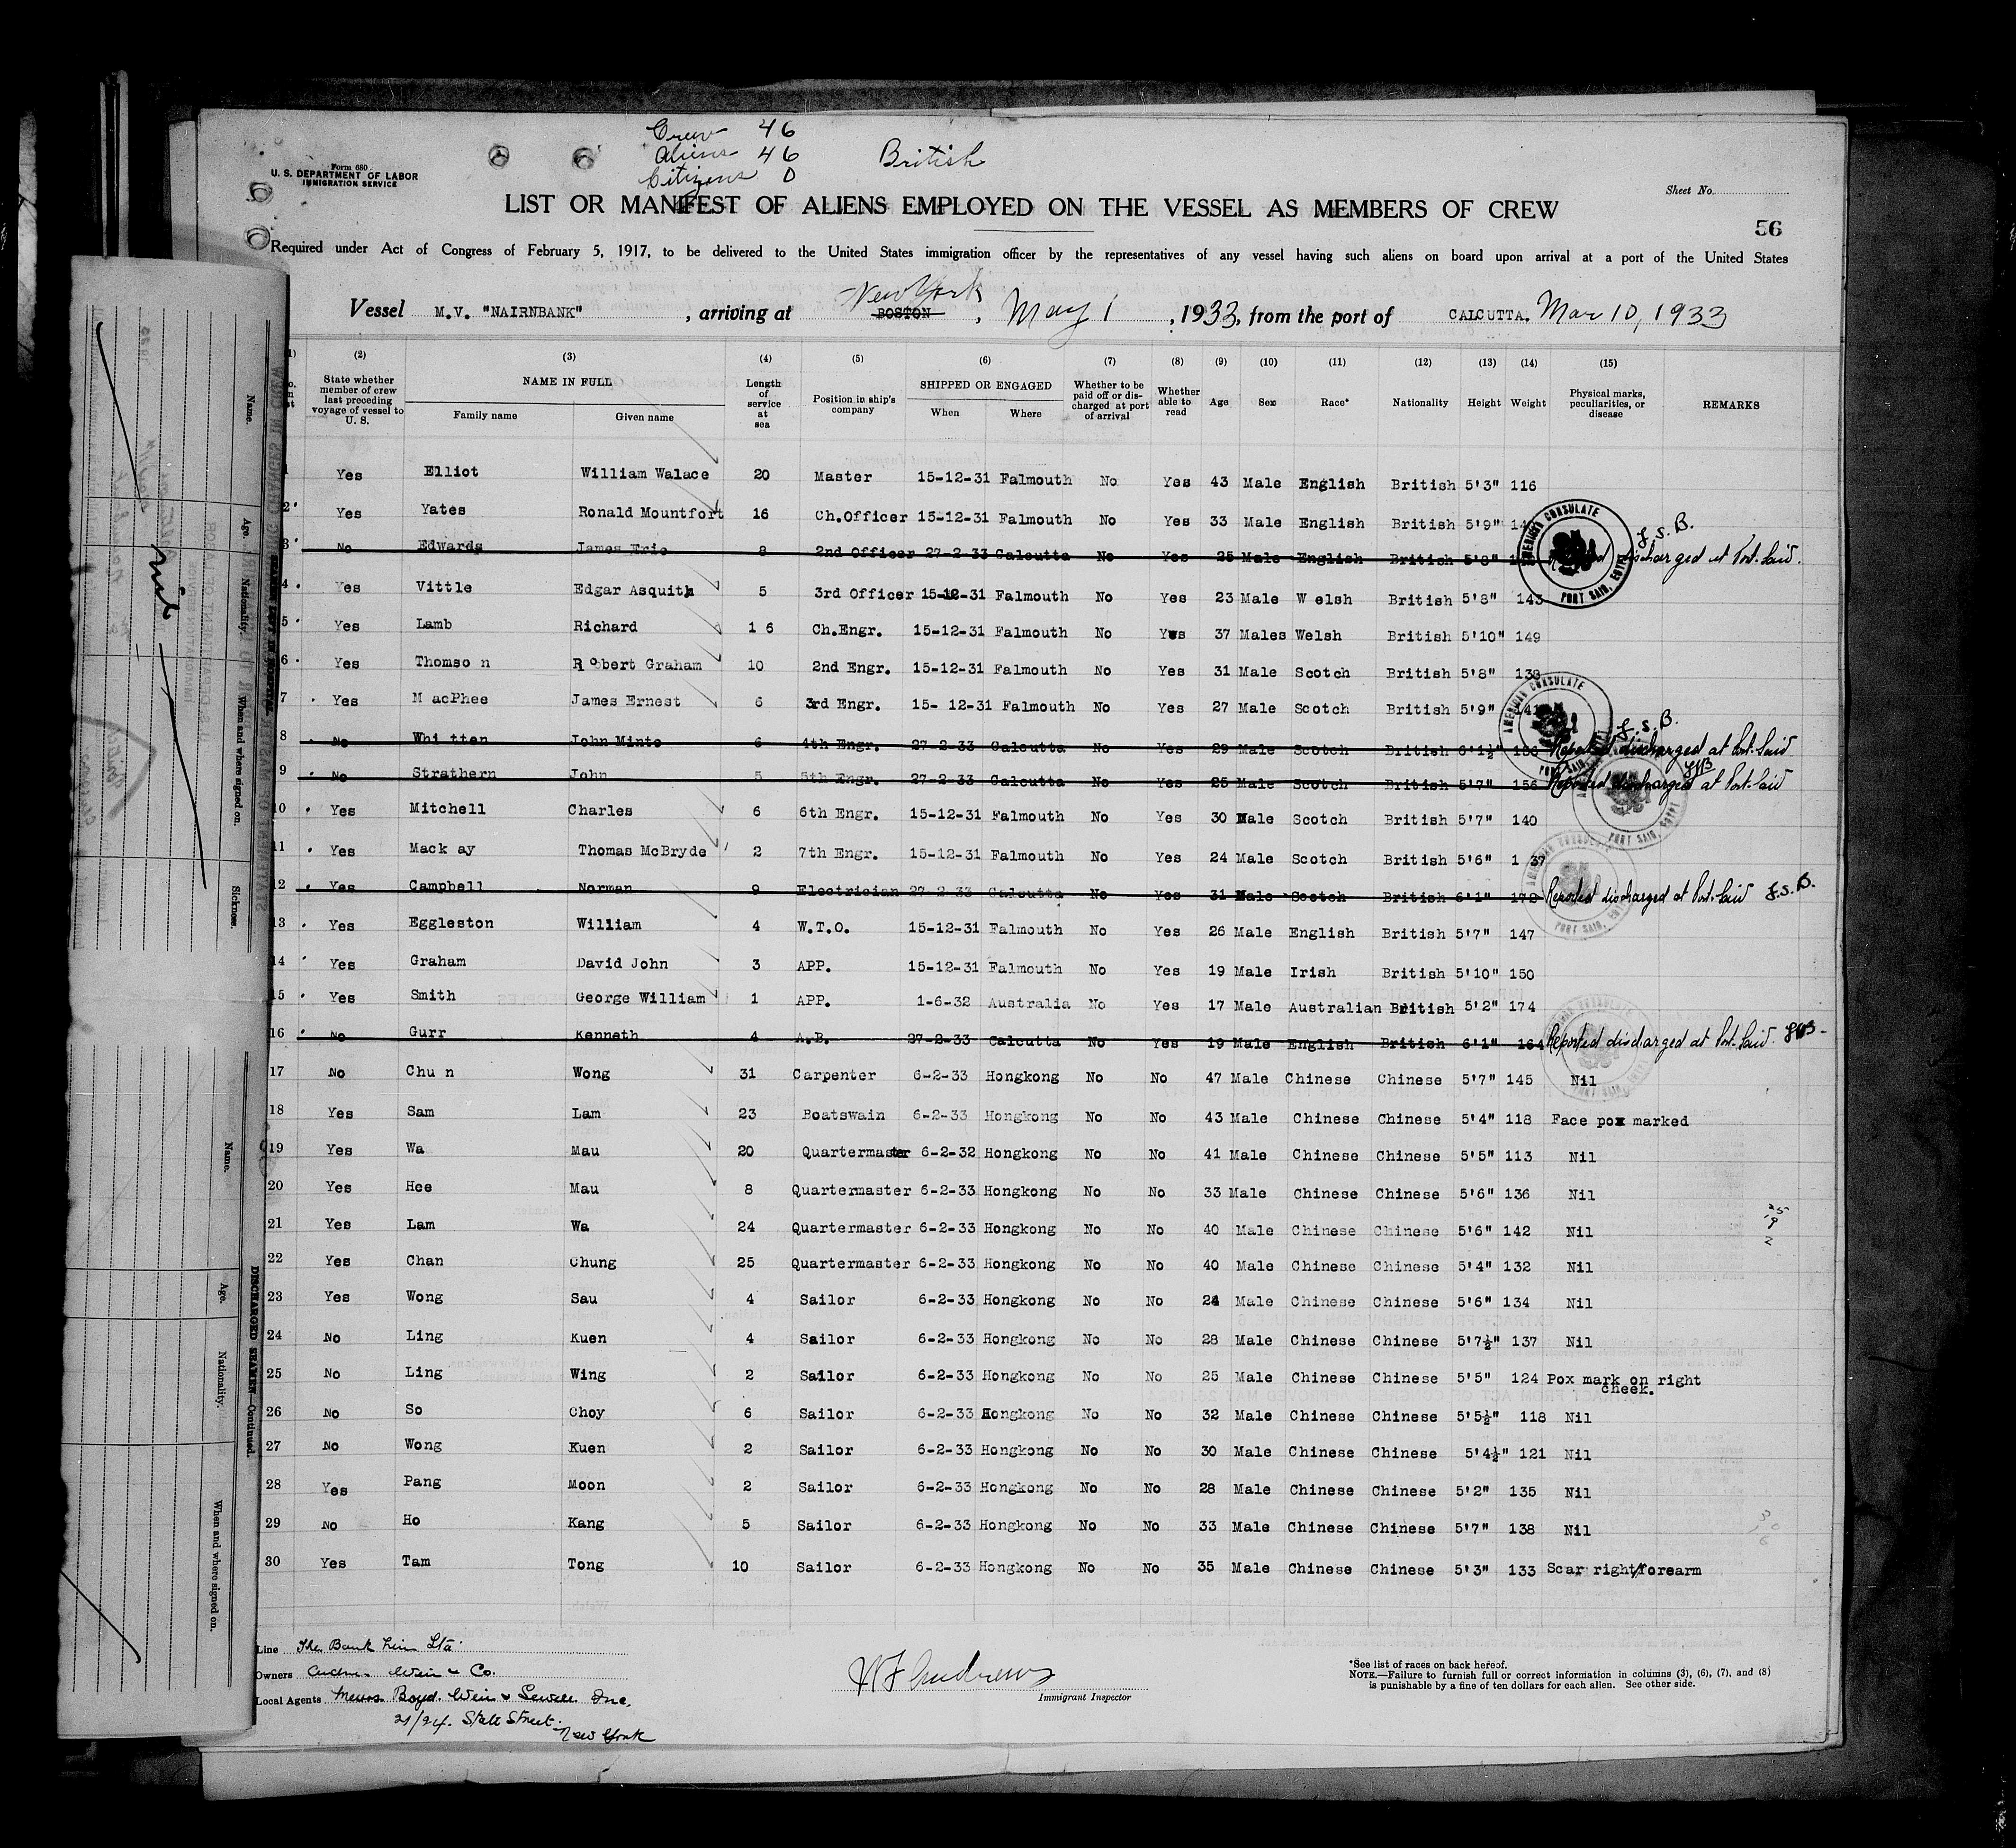 Crew 46
Aliens 46
Citizens 0
British
Form 680
U. S. DEPARTMENT OF LABOR
IMMIGRATION SERVICE
Sheet No.
LIST OR MANIFEST OF ALIENS EMPLOYED ON THE VESSEL AS MEMBERS OF CREW
56
Required under Act of Congress of February 5, 1917, to be delivered to the United States immigration officer by the representatives of any vessel having such aliens on board upon arrival at a port of the United States
New York
Vessel M.V. "NAIRNBANK", arriving at BOSTON, May 1, 1933, from the port of CALCUTTA. Mar 10, 1933
(2) (3) (4) (5) (6) (7) (8) (9) (10) (11) (12) (13) (14) (15)
State whether member of crew last preceding voyage of vessel to U. S. NAME IN FULL Family name Given name Length of service at sea Position in ship's company SHIPPED OR ENGAGED When Where Whether to be paid off or discharged at port of arrival Whether able to read Age Sex Race* Nationality Height Weight Physical marks, peculiarities, or disease REMARKS
1 Yes Elliot William Walace 20 Master 15-12-31 Falmouth No Yes 43 Male English British 5'3" 116
2 Yes Yates Ronald Mountfort 16 Ch.Officer 15-12-31 Falmouth No Yes 33 Male English British 5'9"
3 No Edwards James Eric 8 2nd Officer 27-2-33 Calcutta No Yes 25 Male English British 5'8" discharged at Port-Said. J.S.B.
4 Yes Vittle Edgar Asquith 5 3rd Officer 15-12-31 Falmouth No Yes 23 Male W elsh British 5'8" 143
5 Yes Lamb Richard 1 6 Ch.Engr. 15-12-31 Falmouth No Yws 37 Males Welsh British 5'10" 149
6 Yes Thomso n Robert Graham 10 2nd Engr. 15-12-31 Falmouth No Yes 31 Male Scotch British 5'8" 138
7 Yes M acPhee James Ernest 6 3rd Engr. 15- 12-31 Falmouth No Yes 27 Male Scotch British 5'9" 141
8 No Whi tten John Minto 6 4th Engr. 27-2-33 Calcutta No Yes 29 Male Scotch British 6'1½" 186 Reported discharged at Port-Said J.S.B.
9 No Strathern John 5 5th Engr. 27-2-33 Calcutta No Yes 25 Male Scotch British 5'7" 156 Reported discharged at Port-Said JSB
10 Yes Mitchell Charles 6 6th Engr. 15-12-31 Falmouth No Yes 30 Male Scotch British 5'7" 140
11 Yes Mack ay Thomas McBryde 2 7th Engr. 15-12-31 Falmouth No Yes 24 Male Scotch British 5'6" 1 37
12 Yes Campbell Norman 9 Electrician 27-2-33 Calcutta No Yes 31 Male Scotch British 6'1" 172 Reported discharged at Port-Said J.S.B.
13 Yes Eggleston William 4 W.T.O. 15-12-31 Falmouth No Yes 26 Male English British 5'7" 147
14 Yes Graham David John 3 APP. 15-12-31 Falmouth No Yes 19 Male Irish British 5'10" 150
15 Yes Smith George William 1 APP. 1-6-32 Australia No Yes 17 Male Australian British 5'2" 174
16 No Gurr Kenneth 4 A.B. 27-2-33 Calcutta No Yes 19 Male English British 6'1" 164 Reported discharged at Port-Said. JSB
17 No Chu n Wong 31 Carpenter 6-2-33 Hongkong No No 47 Male Chinese Chinese 5'7" 145 Nil
18 Yes Sam Lam 23 Boatswain 6-2-33 Hongkong No No 43 Male Chinese Chinese 5'4" 118 Face pox marked
19 Yes Wa Mau 20 Quartermaster 6-2-32 Hongkong No No 41 Male Chinese Chinese 5'5" 113 Nil
20 Yes Hee Mau 8 Quartermaster 6-2-33 Hongkong No No 33 Male Chinese Chinese 5'6" 136 Nil
21 Yes Lam Wa 24 Quartermaster 6-2-33 Hongkong No No 40 Male Chinese Chinese 5'6" 142 Nil
22 Yes Chan Chung 25 Quartermaster 6-2-33 Hongkong No No 40 Male Chinese Chinese 5'4" 132 Nil
23 Yes Wong Sau 4 Sailor 6-2-33 Hongkong No No 24 Male Chinese Chinese 5'6" 134 Nil
24 No Ling Kuen 4 Sailor 6-2-33 Hongkong No No 28 Male Chinese Chinese 5'7½" 137 Nil
25 No Ling Wing 2 Sailor 6-2-33 Hongkong No No 25 Male Chinese Chinese 5'5" 124 Pox mark on right cheek.
26 No So Choy 6 Sailor 6-2-33 Hongkong No No 32 Male Chinese Chinese 5'5½" 118 Nil
27 No Wong Kuen 2 Sailor 6-2-33 Hongkong No No 30 Male Chinese Chinese 5'4½" 121 Nil
28 Yes Pang Moon 2 Sailor 6-2-33 Hongkong No No 28 Male Chinese Chinese 5'2" 135 Nil
29 No Ho Kang 5 Sailor 6-2-33 Hongkong No No 33 Male Chinese Chinese 5'7" 138 Nil
30 Yes Tam Tong 10 Sailor 6-2-33 Hongkong No No 35 Male Chinese Chinese 5'3" 133 Scar right/forearm
AMERICAN CONSULATE PORT SAID, EGYPT
Line The Bank Line Ltd.
Owners Weir & Co.
Local Agents Messrs. Boyd, Weir & Sewell Inc.
21/24. State Street.
New York
Immigrant Inspector
*See list of races on back hereof.
NOTE.—Failure to furnish full or correct information in columns (3), (6), (7), and (8)
is punishable by a fine of ten dollars for each alien. See other side.
Name. Age. Nationality. When and where signed on. Sickness.
DISCHARGED SEAMEN—Continued.
Name. Age. Nationality. When and where signed on.